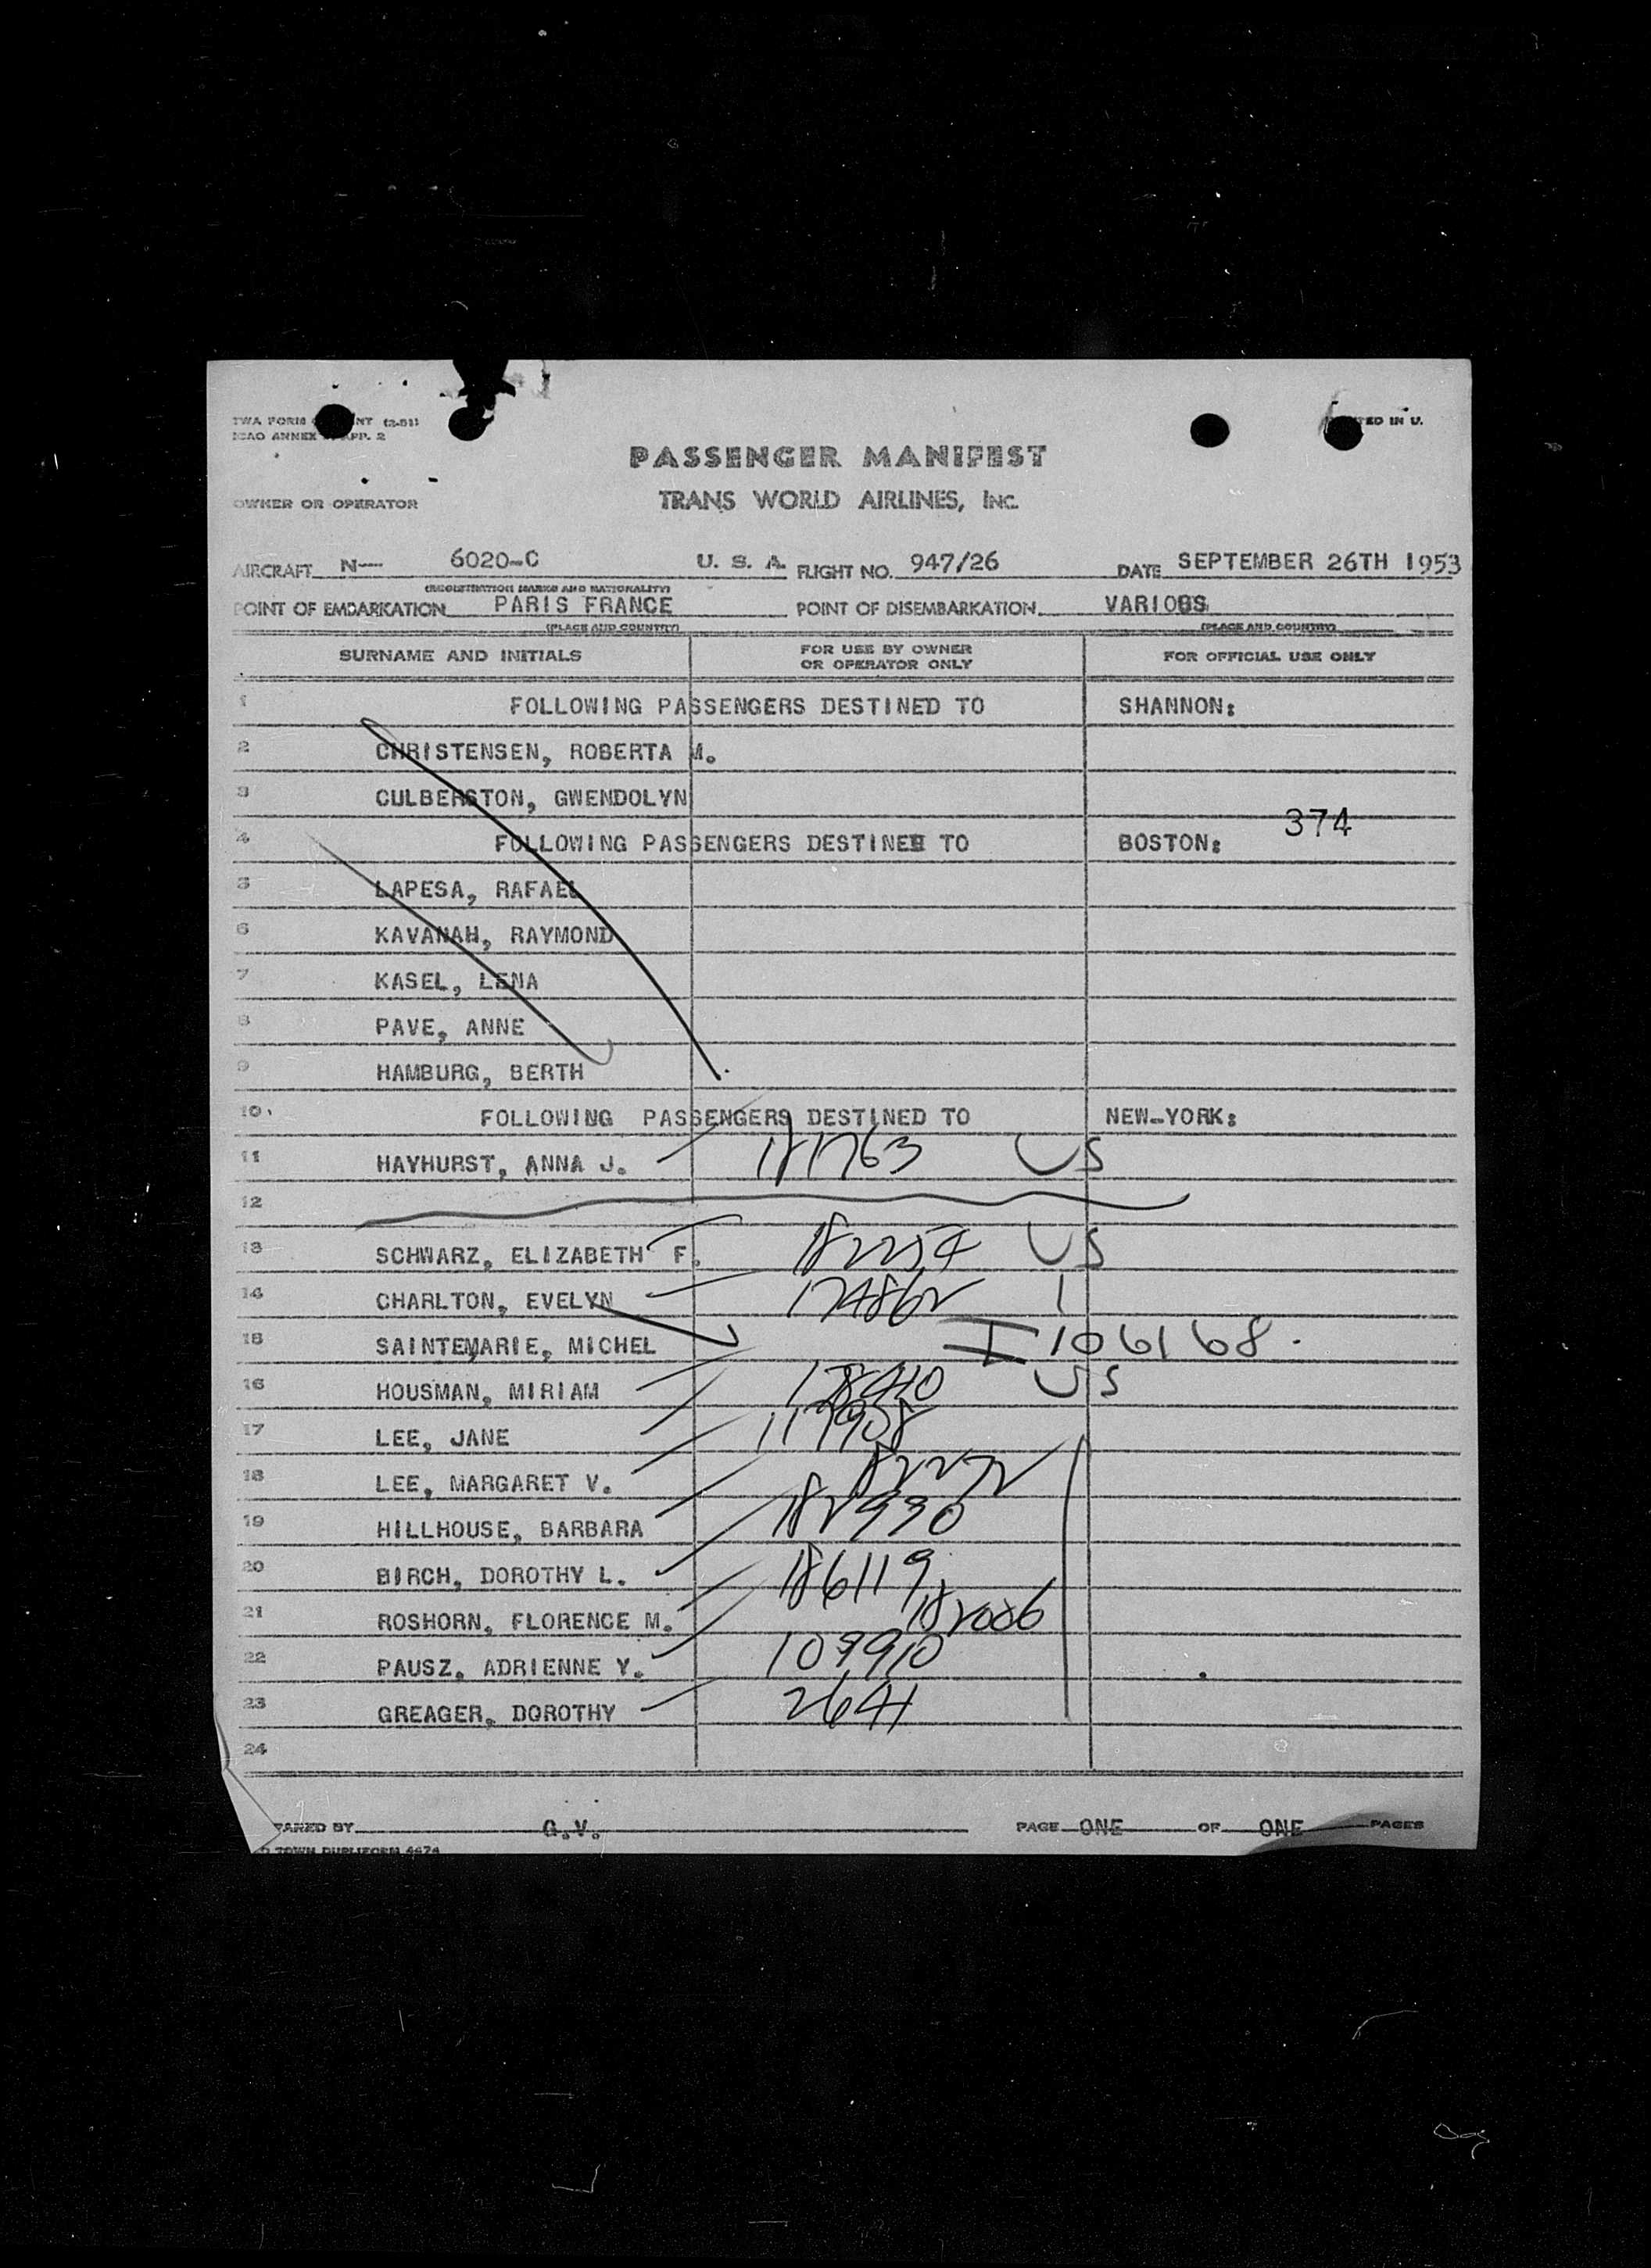 TWA FORM NT (2-51)
ICAO ANNEX APP. 2
TED IN U.
PASSENGER MANIFEST
OWNER OR OPERATOR TRANS WORLD AIRLINES, INC.
AIRCRAFT N-- 6020-C U. S. A. FLIGHT NO. 947/26 DATE SEPTEMBER 26TH 1953
(REGISTRATION MARKS AND NATIONALITY)
POINT OF EMBARKATION PARIS FRANCE POINT OF DISEMBARKATION VARIOUS
(PLACE AND COUNTRY) (PLACE AND COUNTRY)
SURNAME AND INITIALS FOR USE BY OWNER OR OPERATOR ONLY FOR OFFICIAL USE ONLY
1 FOLLOWING PASSENGERS DESTINED TO SHANNON:
2 CHRISTENSEN, ROBERTA M.
3 CULBERSTON, GWENDOLYN
374
4 FOLLOWING PASSENGERS DESTINED TO BOSTON:
5 LAPESA, RAFAEL
6 KAVANAH, RAYMOND
7 KASEL, LENA
8 PAVE, ANNE
9 HAMBURG, BERTH
10 FOLLOWING PASSENGERS DESTINED TO NEW-YORK:
11 HAYHURST, ANNA J. 181763 US
12
13 SCHWARZ, ELIZABETH F. 182254 US
14 CHARLTON, EVELYN 174862 |
15 SAINTEMARIE, MICHEL I 106168.
16 HOUSMAN, MIRIAM US
17 LEE, JANE
18 LEE, MARGARET V. 182272
19 HILLHOUSE, BARBARA 182990
20 BIRCH, DOROTHY L. 186119
21 ROSHORN, FLORENCE M. 182086
22 PAUSZ, ADRIENNE Y. 109910
23 GREAGER, DOROTHY 2641
24
PARED BY G.V. PAGE ONE OF ONE PAGES
TOWN DUPLIFORM 4474